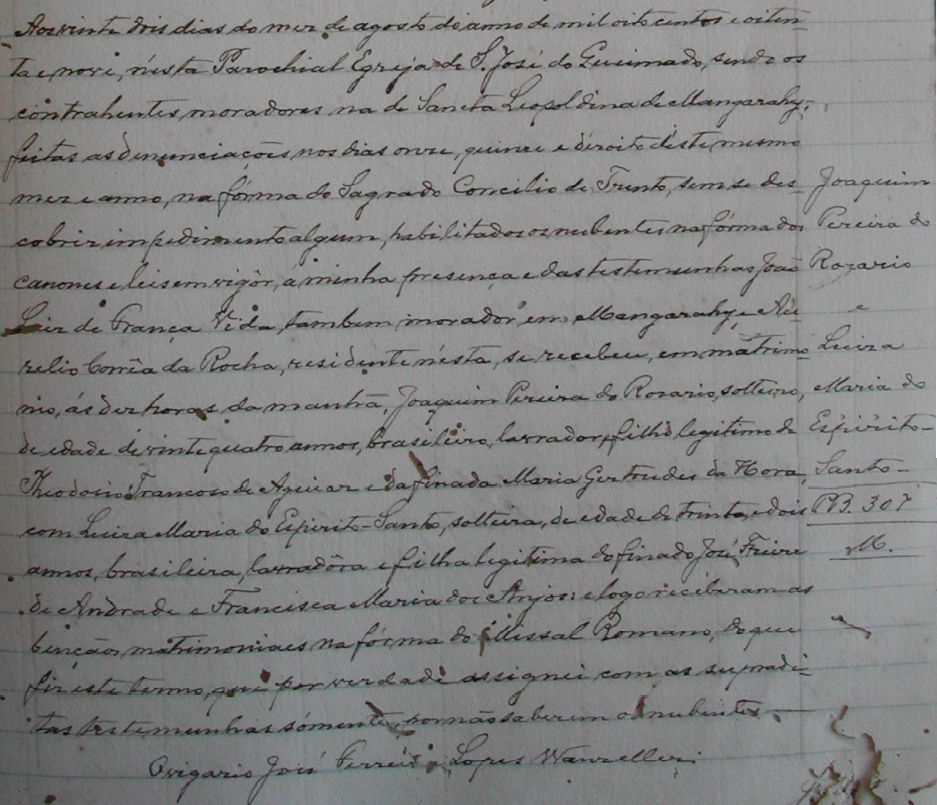 Aos vinte dois dias do mez de agosto do anno de mil oito centos e oiten
ta e nove, n'esta Parochial Egreja de S. José do Queimado, sendo os
contrahentes moradores na de Sancta Leopoldina de Mangarahy,
feitas as denunciações nos dias onze, quinze e dézoito d'este mesmo
mez e anno, na fórma do Sagrado Concilio de Trento, sem se des
cobrir impedimento algum, habilitados os nubentes na fórma dos
canones e leis em vigôr, á minha presença e das testemunhas João
Luiz de França Vida, tambem morador em Mangarahy, e Au
relio Corrêa da Rocha, residente n'ésta, se recebeu, em matrimo
nio, ás dez horas da manhã, Joaquim Pereira do Rozario, solteiro,
de edade de vinte quatro annos, brasileiro, lavrador, filho legitimo de
Theodosio Francoso de Aguiar e da finada Maria Gertrudes da Hora,
com Luiza Maria do Espirito-Santo, solteira, de edade de trinta e dois
annos, brasileira, lavradôra e filha legitima do finado José Freire
de Andrade e Francisca Maria dos Anjos: e logo receberam as
bençãos matrimoniaes na fórma do Missal Romano, do que
fiz este termo, que por verdade assignei com as supradi-
tas testemunhas sómente, por não saberem os nubentes.
O vigario José Ferreira Lopes Wanzelleri
Joaquim
Pereira do
Rozario
e
Luiza
Maria do
Espirito-
Santo-
PB. 307
M.